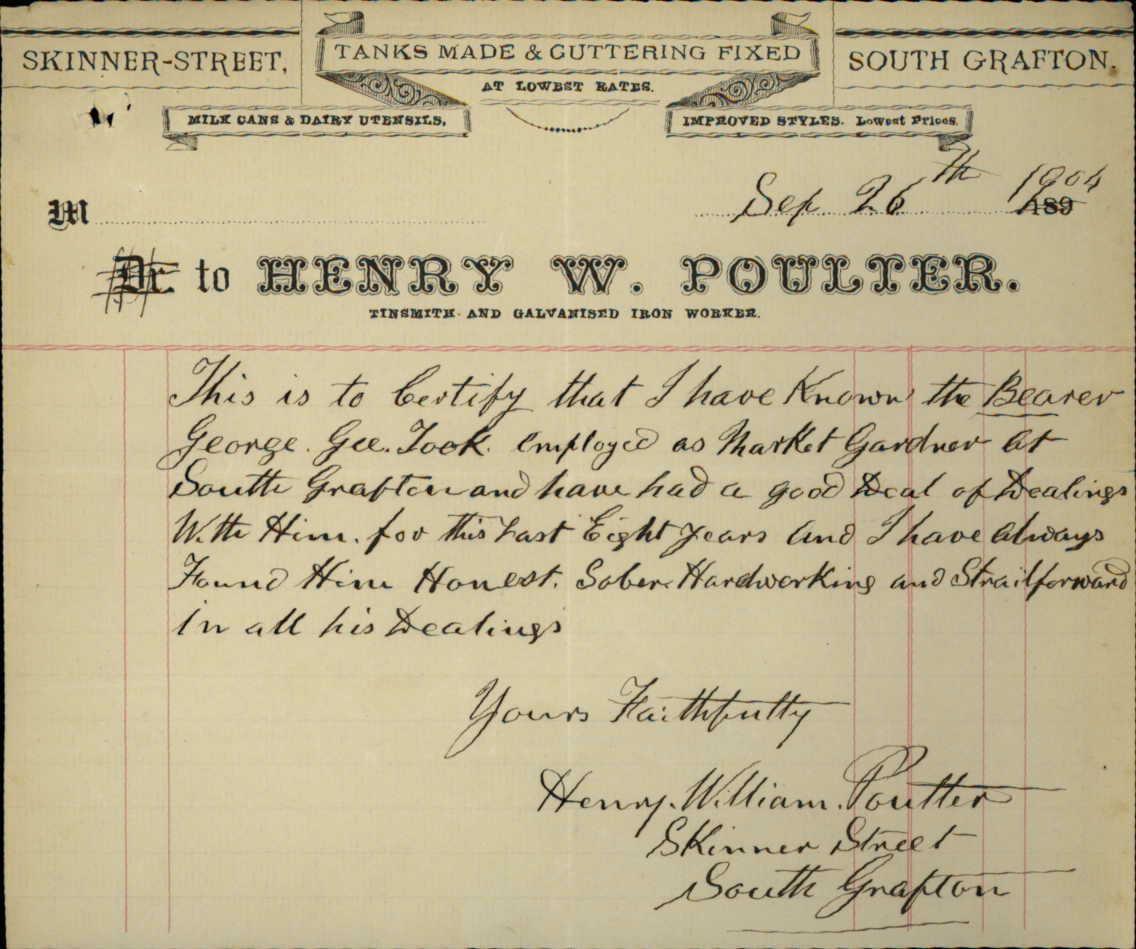 SKINNER-STREET,
TANKS MADE & GUTTERING FIXED
AT LOWEST RATES.
SOUTH GRAFTON.
MILK CANS & DAIRY UTENSILS,
IMPROVED STYLES. Lowest Prices.
Sep 26th 1904
M 189
Dr to HENRY W. POULTER.
TINSMITH AND GALVANISED IRON WORKER.
This is to Certify that I have Known the Bearer
George. Gee. Took. employed as Market Gardner at
South Grafton and have had a good Deal of Dealings
With Him. for this Last Eight years and I have always
Found Him Honest. Sober. Hardworking and Straitforward
in all his Dealings
Yours Faithfully
Henry. William. Poulter
Skinner Street
South Grafton